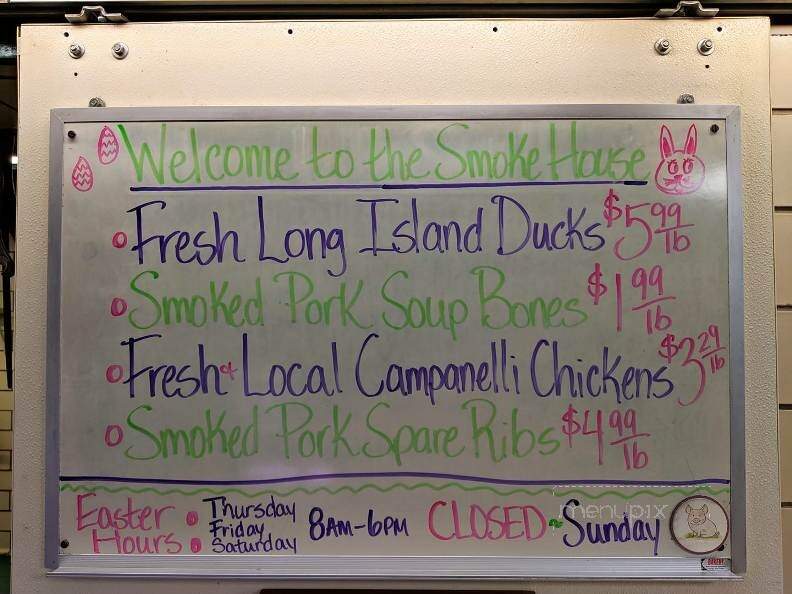 Welcome to the Smoke House
Fresh Long Island Ducks $5.99/lb
Smoked Pork Soup Bones $1.99/lb
Fresh + Local Campanelli Chickens $3.29/lb
Smoked Pork Spare Ribs $4.99/lb
Easter Hours
Thursday
Friday
Saturday
8AM-6PM
CLOSED ~ Sunday
menupix